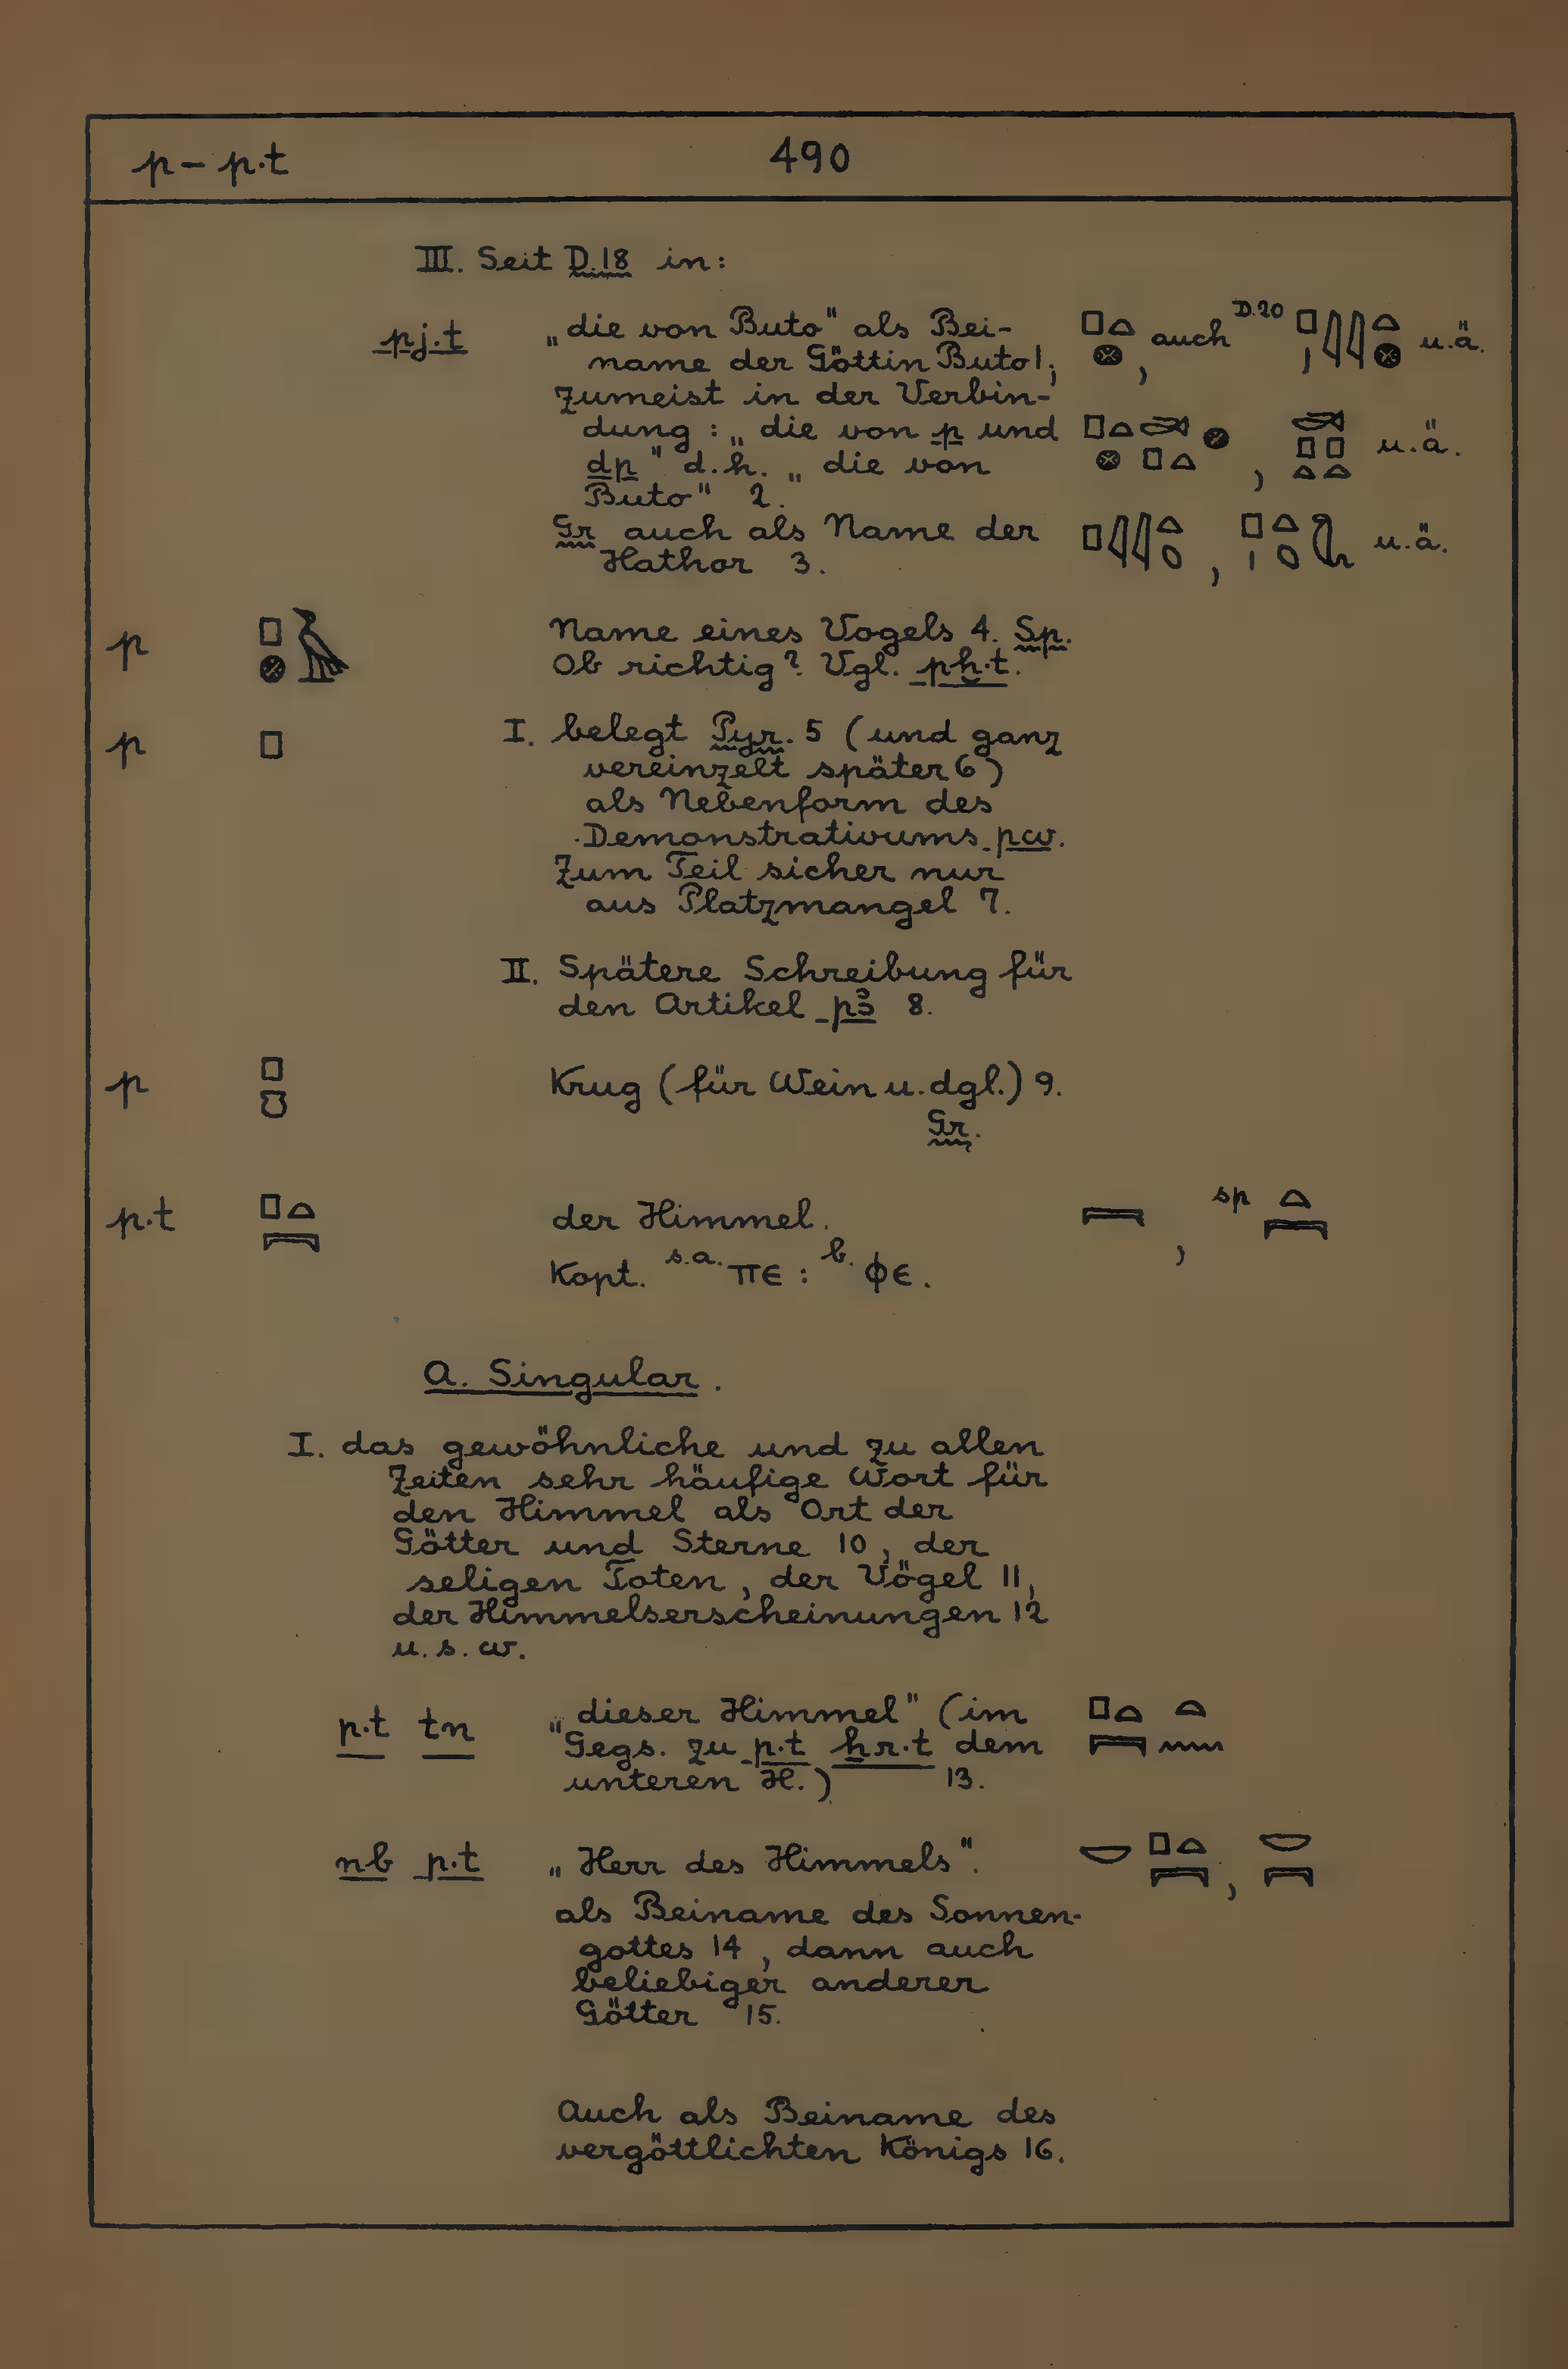 p – p.t 490
III. Seit D.18 in:
pj.t „die von Buto" als Bei- 𓊪𓏏𓊖, auch D.20 𓊪𓇋𓇋𓏏𓊖, u.ä.
name der Göttin Buto 1;
Zumeist in der Verbin-
dung: „die von p und u.ä.
dp" d.h. „die von
Buto" 2.
Gr auch als Name der u.ä.
Hathor 3.
p 𓊪𓊖 Name eines Vogels 4. Sp.
Ob richtig? Vgl. pḫ.t.
p 𓊪 I. belegt Pyr. 5 (und ganz
vereinzelt später 6)
als Nebenform des
Demonstrativums pw.
Zum Teil sicher nur
aus Platzmangel 7.
II. Spätere Schreibung für
den Artikel pꜣ 8.
p 𓊪𓏊 Krug (für Wein u. dgl.) 9.
Gr.
p.t 𓊪𓏏𓇯 der Himmel. 𓇯, sp 𓏏𓇯
Kopt. s.a. ⲡⲉ : b. ⲫⲉ.
A. Singular.
I. das gewöhnliche und zu allen
Zeiten sehr häufige Wort für
den Himmel als Ort der
Götter und Sterne 10, der
seligen Toten, der Vögel 11,
der Himmelserscheinungen 12
u. s. w.
p.t tn „dieser Himmel" (im 𓊪𓏏𓇯 𓏏𓈖
Gegs. zu p.t ẖr.t dem
unteren H.) 13.
nb p.t „Herr des Himmels". 𓎟 𓊪𓏏𓇯, 𓎟𓇯
als Beiname des Sonnen-
gottes 14, dann auch
beliebiger anderer
Götter 15.
Auch als Beiname des
vergöttlichten Königs 16.